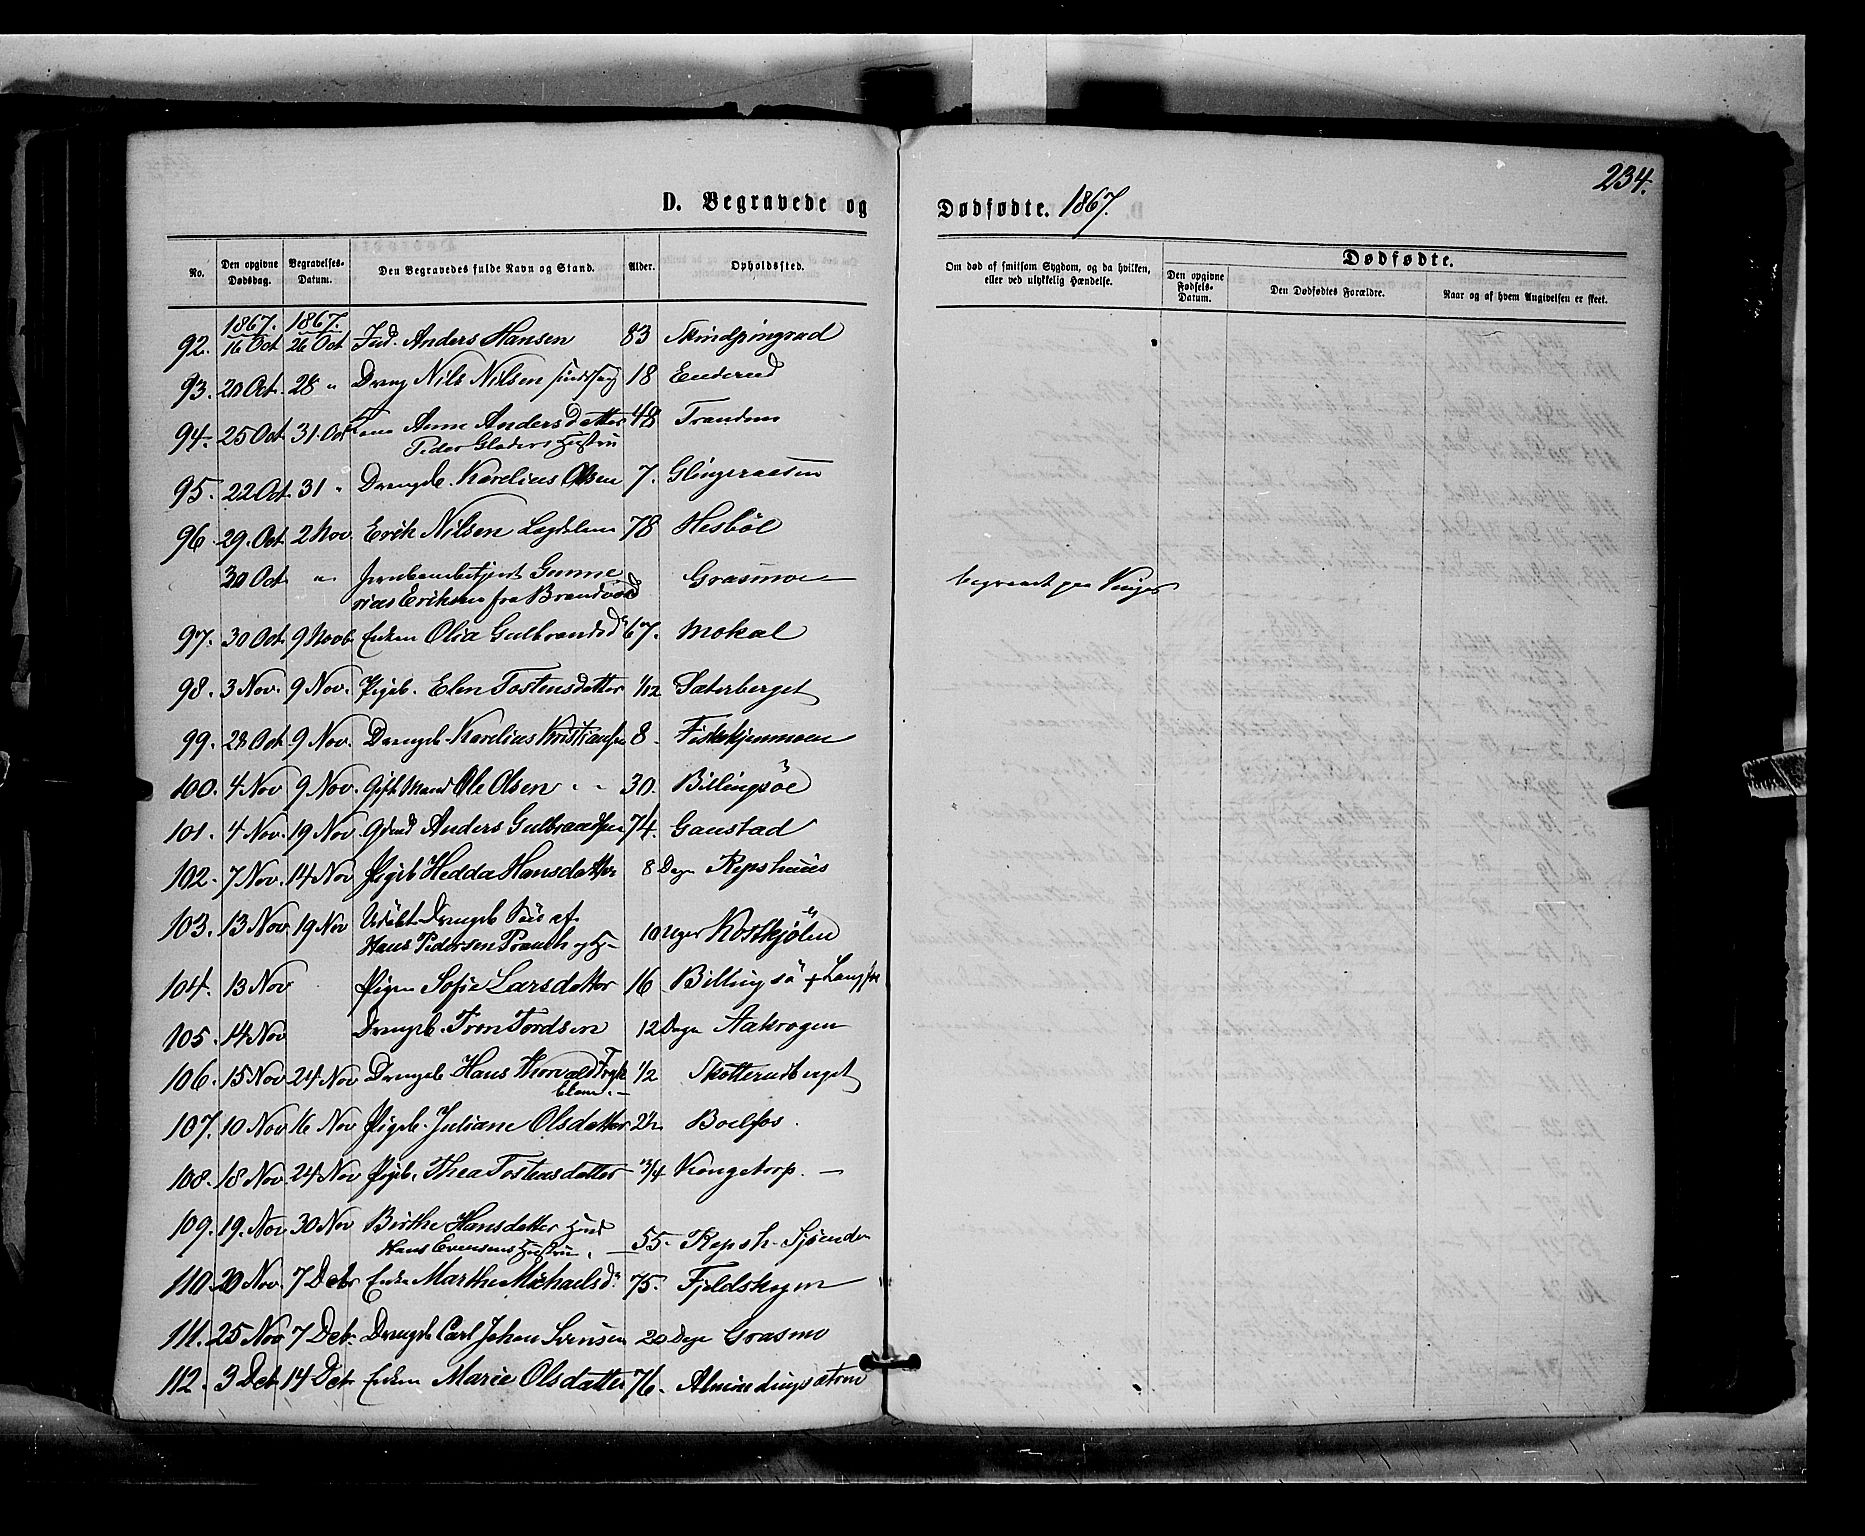 234.
D. Begravede og Dødfødte. 1867.
No. Den opgivne Dødsdag. Begravelses-Datum. Den Begravedes fulde Navn og Stand. Alder. Opholdssted. Om død af smitsom Sygdom, og da hvilken, eller ved ulykkelig Hændelse. Dødfødte. Den opgivne Fødsels-Datum. Den Dødfødtes Forældre. Naar og af hvem Angivelsen er skeet.
1867. 1867.
92. 16 Oct 26 Oct Ind. Anders Hansen 83
93. 20 Oct. 28 " Dreng Nils Nilsen 18 Enderud
94. 25 Oct 31. Oct Kone Anne Andersdatter 48
Peder Hustru
95. 22 Oct. 31 " Drengeb. Karelius Olsen 7.
96. 29. Oct 2 Nov Erik Nilsen Lægdslem 78 Hesböl
30 Oct " Gunne Grasmoe begravet paa Vinger
rius Eriksen fra Brandvold
97. 30 Oct. 9 Novb. Enken Olia Gulbrandsdr 67. Mokal
98. 3 Nov. 9 Nov. Pigeb. Elen Tostensdatter 1/12 Sæterberget
99. 28 Oct 9 Nov. Drengeb. Karelius Kristiansen 8
100. 4 Nov 9 Nov. Gift Mand Ole Olsen " " 30. Billingsöe
101. 4 Nov. 19 Nov. Anders Gulbrandsen 74. Gaustad
102. 7 Nov. 14 Nov Pigeb Hedda Hansdatter 8 Dage Repshuus
103. 13 Nov. 19 Nov Udøbt Drengeb. Søn af
Hans Pedersen 10 Uger
104. 13 Nov Pigen Sofie Larsdatter 16 Billingsö
105. 14 Nov Drengeb. Tron Tordsen 12 Dage Aakrogen
106. 15 Nov 24 Nov Drengeb Hans Thorvald 1/2 Skotterudberget
107. 10 Nov 16 Nov Pigeb. Juliane Olsdatter 2 1/2 Boelfos.
108. 18 Nov 24 Nov Pigeb. Thea Tostensdatter 3/4 Kongetorp. —
109. 19. Nov 30 Nov Birthe Hansdatter
Hans Evensens Hustru. — 55. Repsh.
110. 20 Nov. 7 Debr Enke Marthe Michaelsdr 75. Fjeldskogen
111. 25 Nov 7 Debr. Drengeb Carl Johan Svensen 20 Dage Grasmo
112. 3 Deb 14 Deb Enken Marie Olsdatter 76.